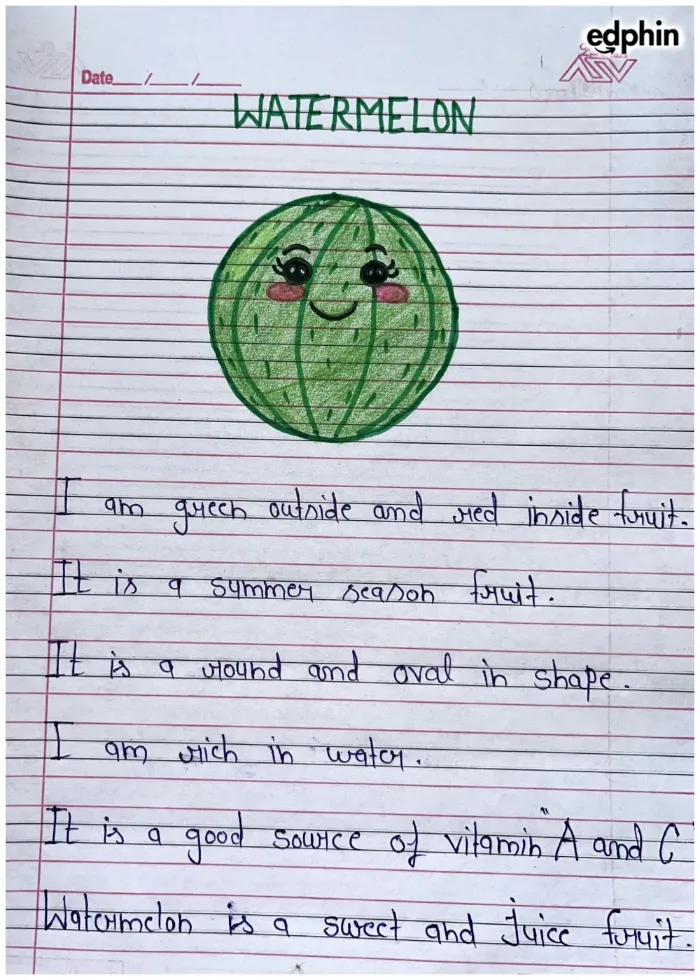 edphin
Date__/__/__
WATERMELON
I am green outside and red inside fruit.
It is a summer season fruit.
It is a round and oval in shape.
I am rich in water.
It is a good source of vitamin "A and C
Watermelon is a sweet and juice fruit.